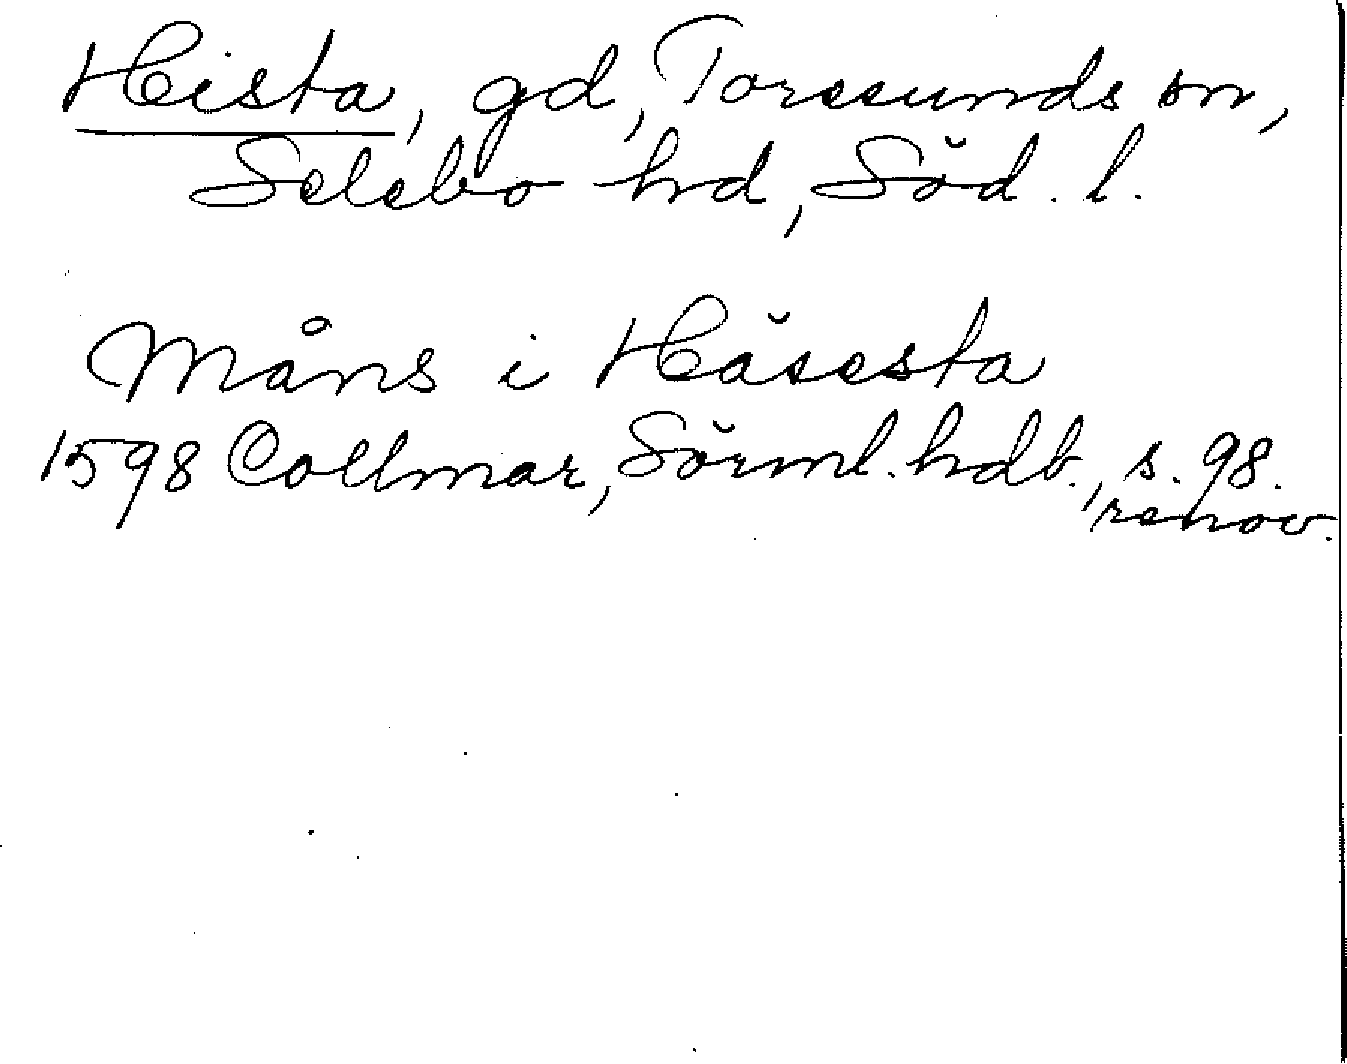 Hista, gd, Toresunds sn,
Selebo hd, Söd. l.
Måns i Häsesta
1598 Collmar, Sörml. hdb., s. 98.
renov.